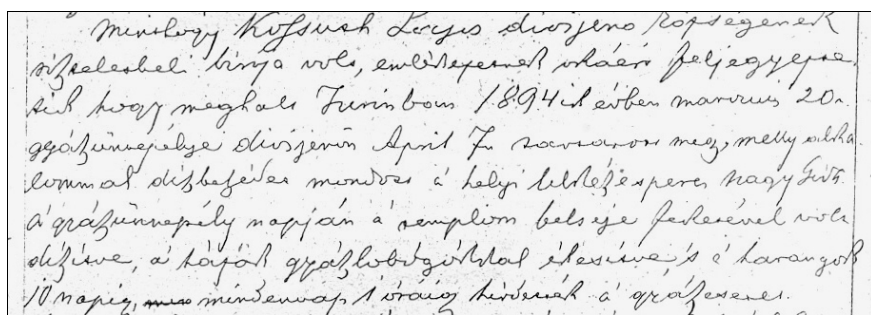 Minthogy Kossuth Lajos diósjenő községének
tiszteletbeli bírja volt, emlékezetnek okáért feljegyezte-
tik hogy meghalt Turinban 1894ik évben március 20n.
gyászünnepélye diósjenőn April 7n tartatott meg, melly alka
lommal díszbeszédet mondott á helyi lelkész esperes Nagy
á gyászünnepély napján á templom belseje feketével volt
díszítve, á házak gyászlobogókkal ékesítve 's á harangok
10 napig, mindennap 1 óráig hirdették á gyászesetet.